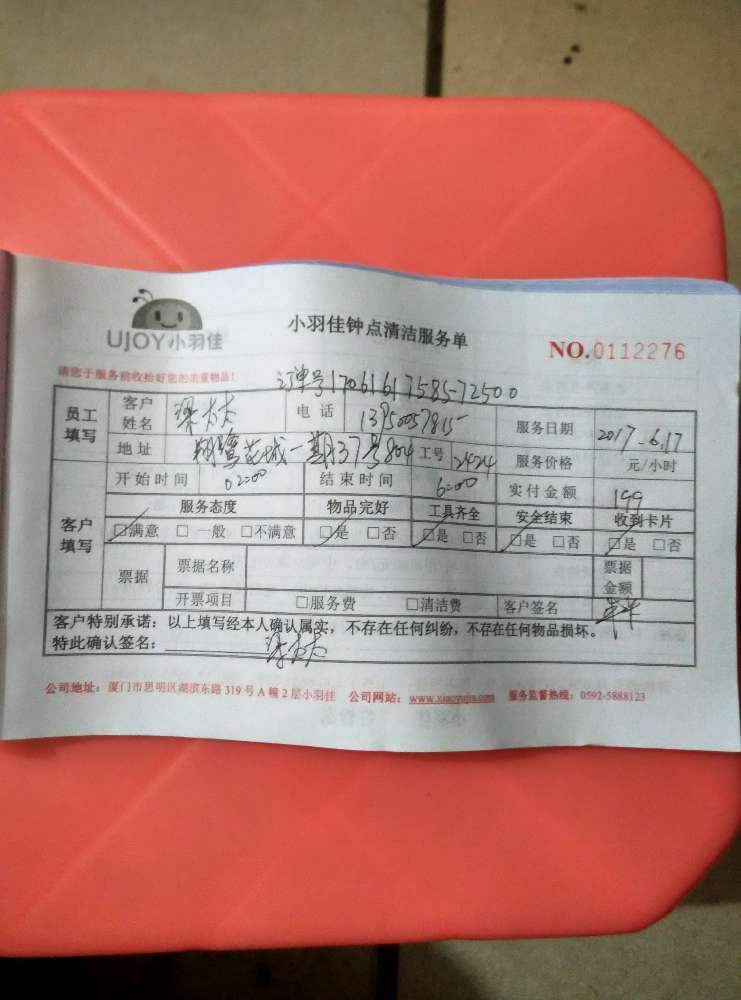 UJOY小羽佳
小羽佳钟点清洁服务单
NO.0112276
请您于服务前收拾好您的贵重物品!
订单号1706161758572500
员工填写 客户姓名 梁 电话 13950057815 服务日期 2017-6.17
地址 翔鹭花城一期37号804 工号 2424 服务价格 元/小时
开始时间 02:00 结束时间 6:00 实付金额 199
客户填写 服务态度 物品完好 工具齐全 安全结束 收到卡片
□满意 □一般 □不满意 □是 □否 □是 □否 □是 □否 □是 □否
票据 票据名称 票据金额
开票项目 □服务费 □清洁费 客户签名
客户特别承诺:以上填写经本人确认属实,不存在任何纠纷,不存在任何物品损坏。
特此确认签名:
公司地址:厦门市思明区湖滨东路319号A幢2层小羽佳 公司网站:www.xiaoyujia.com 服务监督热线:0592-5888123